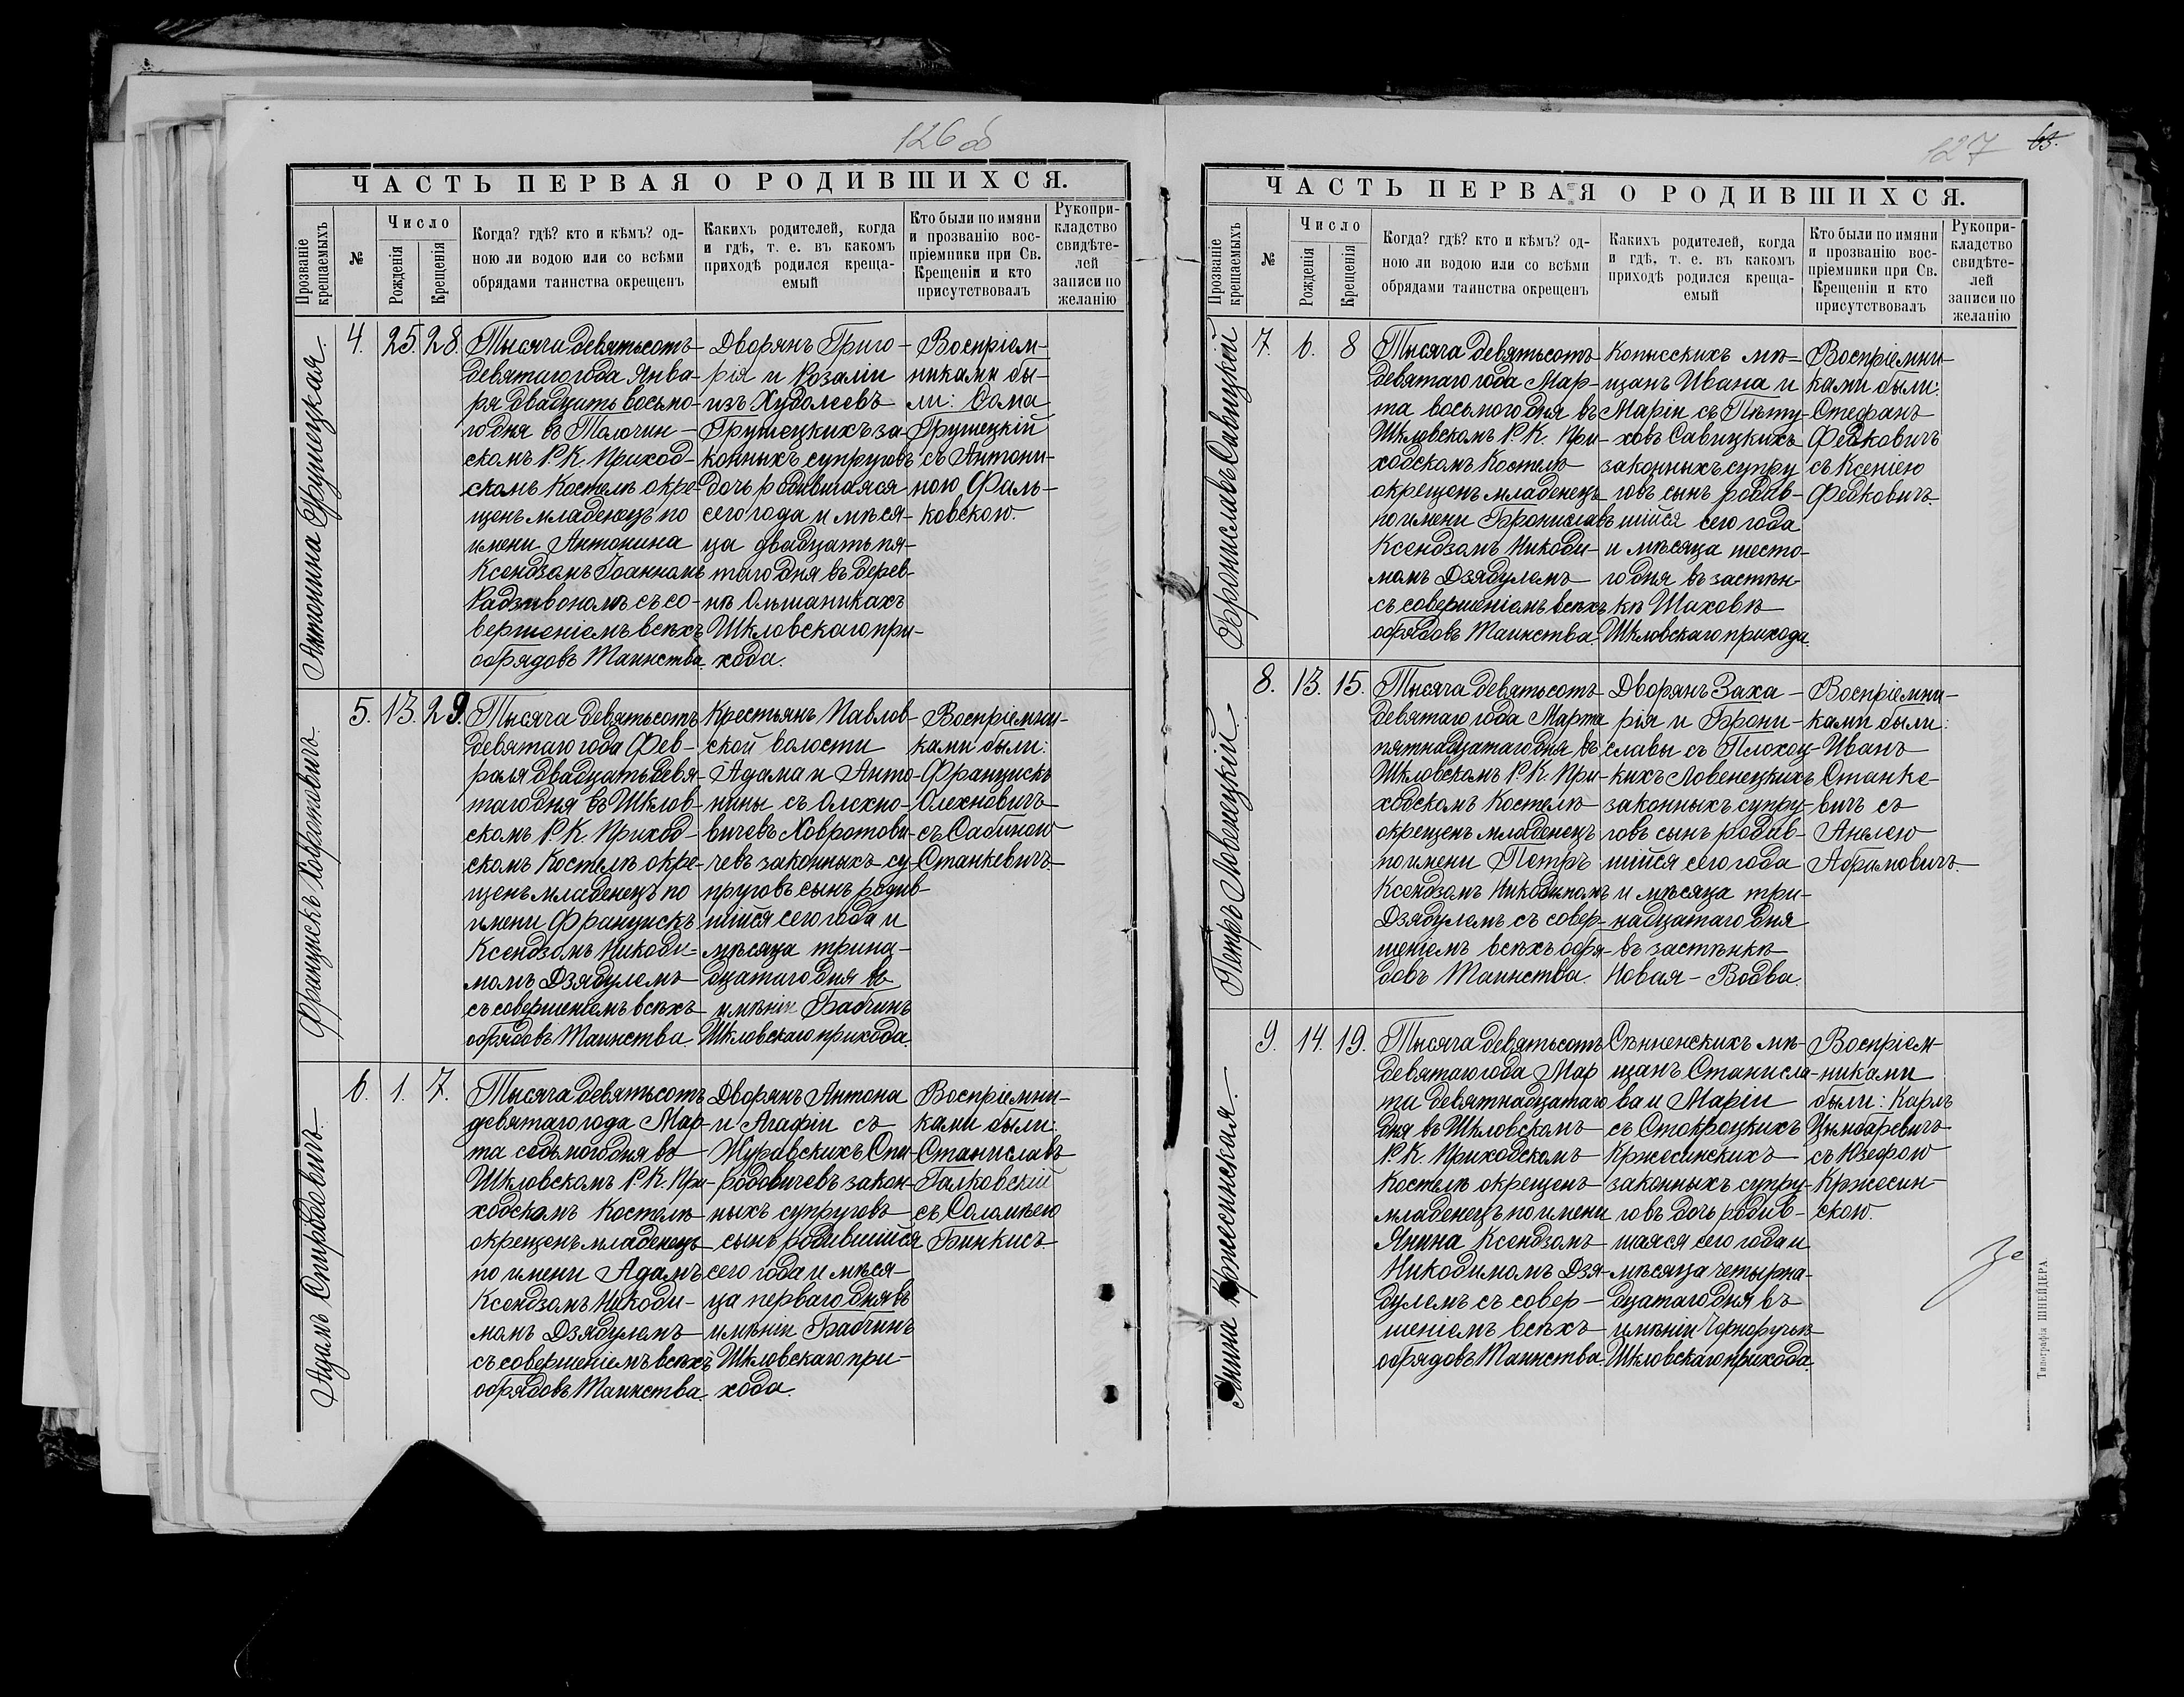 126 об
ЧАСТЬ ПЕРВАЯ О РОДИВШИХСЯ.
Прозваніе крещаемыхъ
№
Число
Рожденія
Крещенія
Когда? гдѣ? кто и кѣмъ? од-
ною ли водою или со всѣми
обрядами таинства окрещенъ
Какихъ родителей, когда
и гдѣ, т. е. въ какомъ
приходѣ родился креща-
емый
Кто были по имяни
и прозванію вос-
пріемники при Св.
Крещеніи и кто
присутствовалъ
Рукопри-
кладство
свидѣте-
лей
записи по
желанію
Антонина Грушецкая.
4.
25.
28.
Тысяча девятьсотъ
девятаго года Янва-
ря двадцать восьмо-
го дня въ Толочин-
скомъ Р. К. Приход-
скомъ Костелѣ окре-
щенъ младенецъ по
имени Антонина
Ксендзомъ Іоанномъ
Радзивономъ съ со-
вершеніемъ всѣхъ
обрядовъ Таинства.
Дворянъ Григо-
рія и Розаліи
изъ Худолеевъ
Грушецкихъ за-
конныхъ супруговъ
дочь родившаяся
сего года и мѣся-
ца двадцать пя-
таго дня въ дерев-
нѣ Ольшаникахъ
Шкловскаго при-
хода.
Воспріем-
никами бы-
ли: Ѳома
Грушецкій
съ Антони-
ною Фаль-
ковскою.
Францискъ Ховратовичъ.
5.
13.
29.
Тысяча девятьсотъ
девятаго года Фев-
раля двадцать девя-
таго дня въ Шклов-
скомъ Р. К. Приход-
скомъ Костелѣ окре-
щенъ младенецъ по
имени Францискъ
Ксендзомъ Никоди-
момъ Дзядулемъ
съ совершеніемъ всѣхъ
обрядовъ Таинства
Крестьянъ Павлов-
ской волости
Адама и Анто-
нины съ Олехно-
вичевъ Ховратови-
чевъ законныхъ су-
пруговъ сынъ родив-
шійся сего года и
мѣсяца трина-
дцатаго дня въ
имѣніи Бабчинъ
Шкловскаго прихода.
Воспріемни-
ками были:
Францискъ
Олехновичъ
съ Сабиною
Станкевичъ.
Адамъ Спиродовичъ.
6.
1.
7.
Тысяча девятьсотъ
девятаго года Мар-
та седьмого дня въ
Шкловскомъ Р. К. При-
ходскомъ Костелѣ
окрещенъ младенецъ
по имени Адамъ
Ксендзомъ Никоди-
момъ Дзядулемъ
съ совершеніемъ всѣхъ
обрядовъ Таинства.
Дворянъ Антона
и Агафіи съ
Журавскихъ Спи-
родовичевъ закон-
ныхъ супруговъ
сынъ родившійся
сего года и мѣся-
ца перваго дня въ
имѣніи Бабчинъ
Шкловскаго при-
хода.
Воспріемни-
ками были:
Станиславъ
Галковскій
съ Соломѣею
Бинкисъ.
127
63.
ЧАСТЬ ПЕРВАЯ О РОДИВШИХСЯ.
Прозваніе крещаемыхъ
№
Число
Рожденія
Крещенія
Когда? гдѣ? кто и кѣмъ? од-
ною ли водою или со всѣми
обрядами таинства окрещенъ
Какихъ родителей, когда
и гдѣ, т. е. въ какомъ
приходѣ родился креща-
емый
Кто были по имяни
и прозванію вос-
пріемники при Св.
Крещеніи и кто
присутствовалъ
Рукопри-
кладство
свидѣте-
лей
записи по
желанію
Брониславъ Савицкій
7.
6.
8
Тысяча девятьсотъ
девятаго года Мар-
та восьмого дня въ
Шкловскомъ Р. К. При-
ходскомъ Костелѣ
окрещенъ младенецъ
по имени Брониславъ
Ксендзомъ Никоди-
момъ Дзядулемъ
съ совершеніемъ всѣхъ
обрядовъ Таинства.
Копысскихъ мѣ-
щанъ Ивана и
Маріи съ Пѣту-
ховъ Савицкихъ
законныхъ супру
говъ сынъ родив-
шійся сего года
и мѣсяца шесто-
го дня въ застѣн-
кѣ Шаховѣ
Шкловскаго прихода.
Воспріемни-
ками были:
Стефанъ
Федковичъ
съ Ксеніею
Федковичъ.
Петръ Ловенецкій.
8.
13.
15.
Тысяча девятьсотъ
девятаго года Марта
пятнадцатаго дня въ
Шкловскомъ Р. К. При-
ходскомъ Костелѣ
окрещенъ младенецъ
по имени Петръ
Ксендзомъ Никодимомъ
Дзядулемъ съ совер-
шеніемъ всѣхъ обря-
довъ Таинства.
Дворянъ Заха-
рія и Брони-
славы съ Плохоц-
кихъ Ловенецкихъ
законныхъ супру-
говъ сынъ родив-
шійся сего года
и мѣсяца три-
надцатаго дня
въ застѣнкѣ
Новая-Водва.
Воспріемни-
ками были:
Иванъ
Станке-
вичъ съ
Анелею
Абрамовичъ.
Янина Кржесинская.
9.
14.
19.
Тысяча девятьсотъ
девятаго года Мар
та девятнадцатаго
дня въ Шкловскомъ
Р. К. Приходскомъ
Костелѣ окрещенъ
младенецъ по имени
Янина Ксендзомъ
Никодимомъ Дзя-
дулемъ съ совер-
шеніемъ всѣхъ
обрядовъ Таинства.
Сѣнненскихъ мѣ-
щанъ Станисла-
ва и Маріи
съ Стокроцкихъ
Кржесинскихъ
законныхъ супру-
говъ дочь родив-
шаяся сего года и
мѣсяца четырна-
дцатаго дня въ
имѣніи Черноручьѣ
Шкловскаго прихода.
Воспріем-
никами
были: Карлъ
Цымбаревичъ
съ Юзефою
Кржесин-
скою.
Типографія ШНЕЙДЕРА